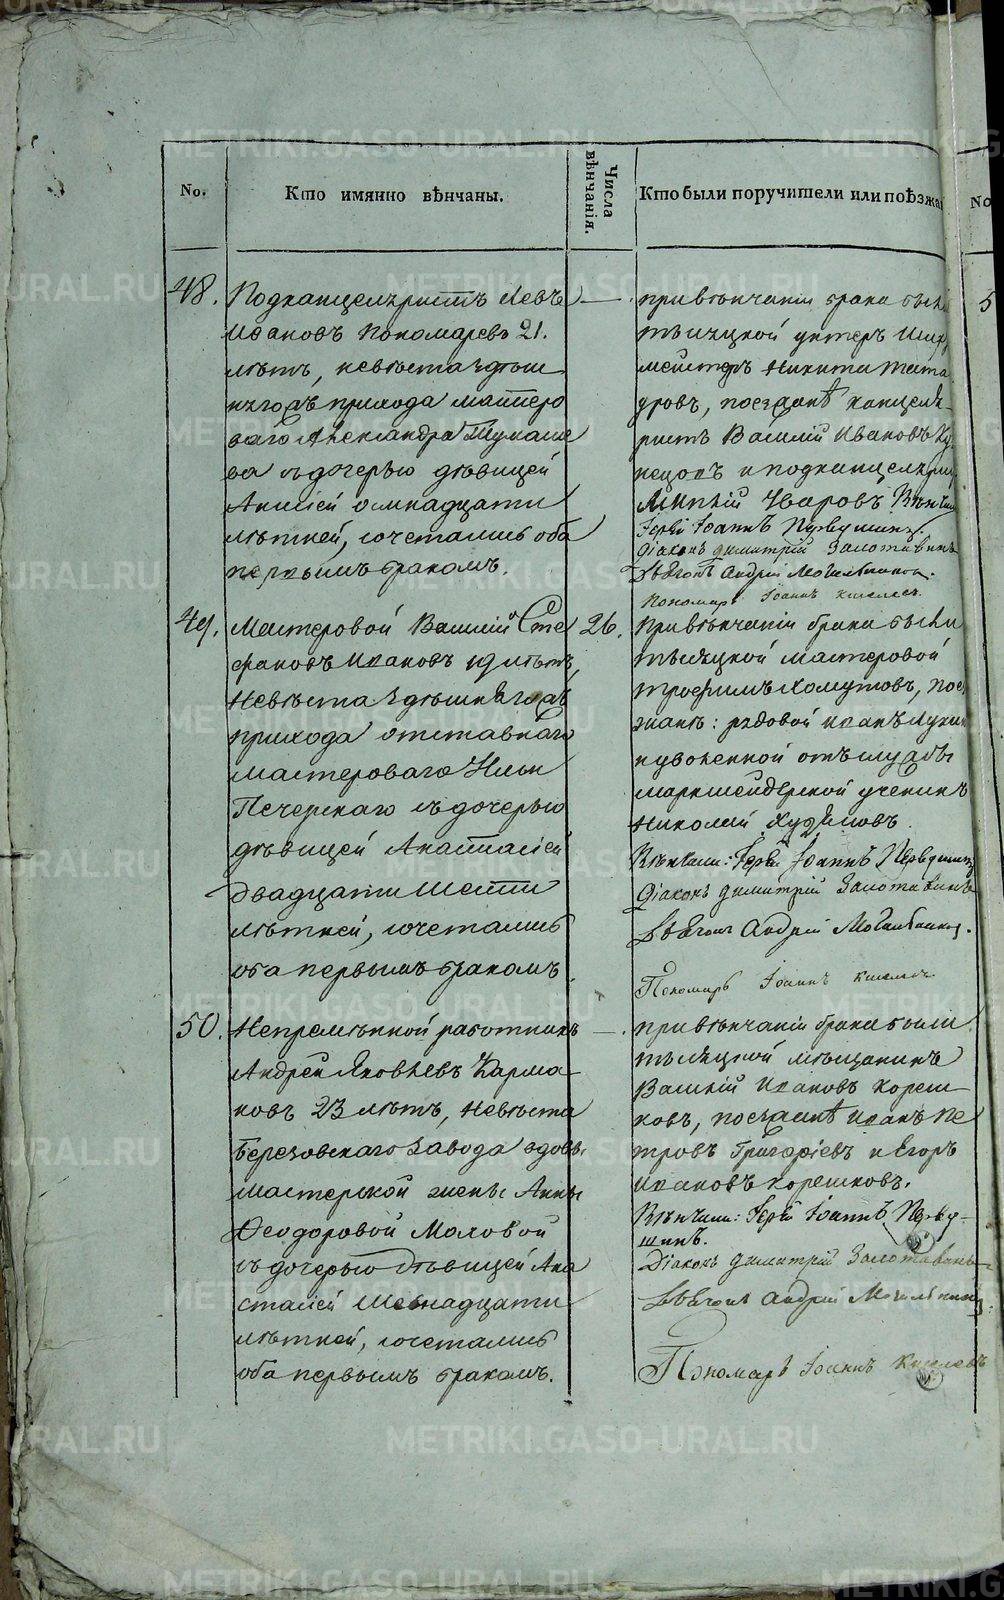 No.
Кто имянно вѣнчаны.
Числа вѣнчанія.
Кто были поручители или поѣзжа
No
48.
Подканцеляристъ Левъ
Ивановъ Пономаревъ 21.
лѣтъ, невѣста здѣш
няго прихода мастеро
ваго Александра Тумаше
ва съ дочерью дѣвицей
осмнадцати
лѣтней, сочетались оба
первымъ бракомъ.
привѣнчаніи брака были
тысяцкой унтеръ Шихт
мейстеръ Никита
уровъ, поезжанѣ канцеля
ристъ Василій Ивановъ Ку
нецовъ и подканцеляри
Уваровъ, Вѣнчали
Іерей Іоаннъ Первушинъ,
Діаконъ Димитрій Золотавинъ
Дьячокъ Андрей Могильников.
Пономарь Іоаннъ Киселевъ
49.
Мастеровой Василій Сте
фановъ Ивановъ 19 лѣтъ,
Невѣста здѣшняго
прихода отставнаго
мастероваго Ильи
Печерскаго съ дочерью
дѣвицей Анастасіей
двадцати шести
лѣтней, сочетались
оба первымъ бракомъ
26.
привѣнчаніи брака были
тысяцкой мастеровой
Трофимъ Хомутовъ, пое
зжанѣ: рядовой Иванъ Лукин
и уволенной отъ службы
маркшейдерской ученикъ
Николай Худяковъ.
Вѣнчали: Іерей Іоаннъ Первушинъ
Діаконъ Димитрій Золотавинъ
Дьячокъ Андрей Могильников.
Пономарь Іоаннъ Киселевъ
50.
Непремѣнной работникъ
Андрей Яковлевъ Карма
ковъ 23 лѣтъ, невѣста
Березовскаго завода вдовы
мастерской жены Анны
Феодоровой Маховой
съ дочерью дѣвицей Ана
стасіей шеснадцати
лѣтней, сочетались
оба первымъ бракомъ.
привѣнчаніи брака были
тысяцкой мѣщанинъ
Василій Ивановъ Кореш
ковъ, поезжанѣ Иванъ Пе
тровъ Григоріевъ и Егоръ
Ивановъ Корешковъ.
Вѣнчали: Іерей Іоаннъ Перву-
шинъ.
Діаконъ Димитрій Золотавинъ
Дьячокъ Андрей Могильников.
Пономарь Іоаннъ Киселевъ
5
METRIKI.GASO-URAL.RU